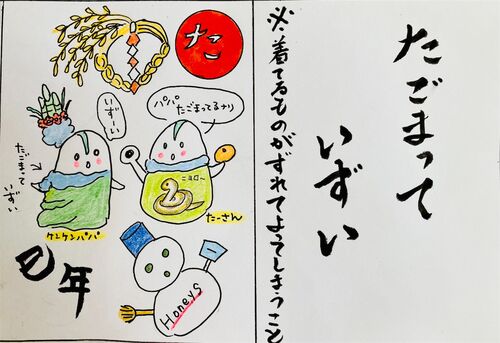 たごまって
いずい
※着てるものがずれてよってしまうこと
た
いずーい
パパ
たごまってるナリ
たごまって
いずい
ニョロ〜
ケンケンパパ
たーさん
巳年
Honeys